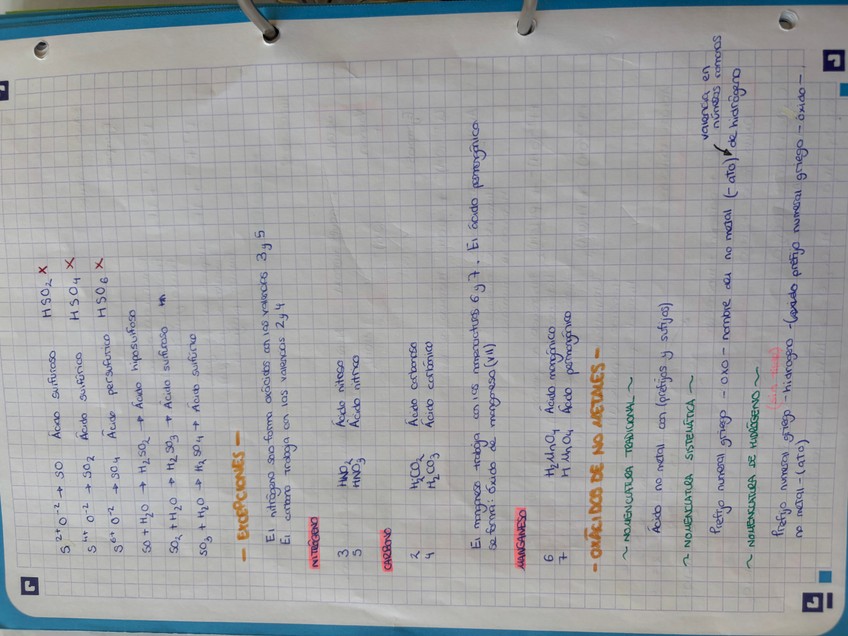 S²⁺ O⁻² → SO Ácido sulfuroso HSO₂ X
S⁴⁺ O⁻² → SO₂ Ácido sulfúrico HSO₄ X
S⁶⁺ O⁻² → SO₄ Ácido persulfúrico HSO₆ X
SO + H₂O → H₂SO₂ → Ácido hiposulfoso
SO₂ + H₂O → H₂SO₃ → Ácido sulfuroso
SO₃ + H₂O → H₂SO₄ → Ácido sulfúrico
- EXCEPCIONES -
El nitrógeno solo forma oxácidos con las valencias 3 y 5
El carbono trabaja con las valencias 2 y 4
NITRÓGENO
3 HNO₂ Ácido nitroso
5 HNO₃ Ácido nítrico
CARBONO
2 H₂CO₂ Ácido carbonoso
4 H₂CO₃ Ácido carbónico
El manganeso trabaja con los 6 y 7. El ácido permangánico
se forma: óxido de manganeso (VII)
MANGANESO
6 H₂MnO₄ Ácido mangánico
7 HMnO₄ Ácido permangánico
- OXÁCIDOS DE NO METALES -
~ NOMENCLATURA TRADICIONAL ~
Ácido no metal con (prefijos y sufijos)
~ NOMENCLATURA SISTEMÁTICA ~
valencia en
números romanos
Prefijo numeral griego - oxo - nombre del no metal (-ato) de hidrógeno
~ NOMENCLATURA DE HIDRÓGENO ~
Prefijo numeral griego - hidrogeno - ( prefijo numeral griego - óxido -
no metal - (ato)